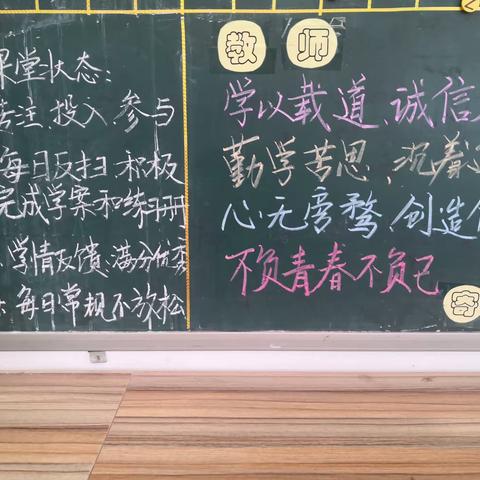 课堂状态:
专注、投入、参与
每日反扫 积极
完成学案和练习册
学情反馈:满分优秀
每日常规不放松
教师
学以载道、诚信
勤学苦思、沉着
心无旁骛、创造
不负青春不负己
寄